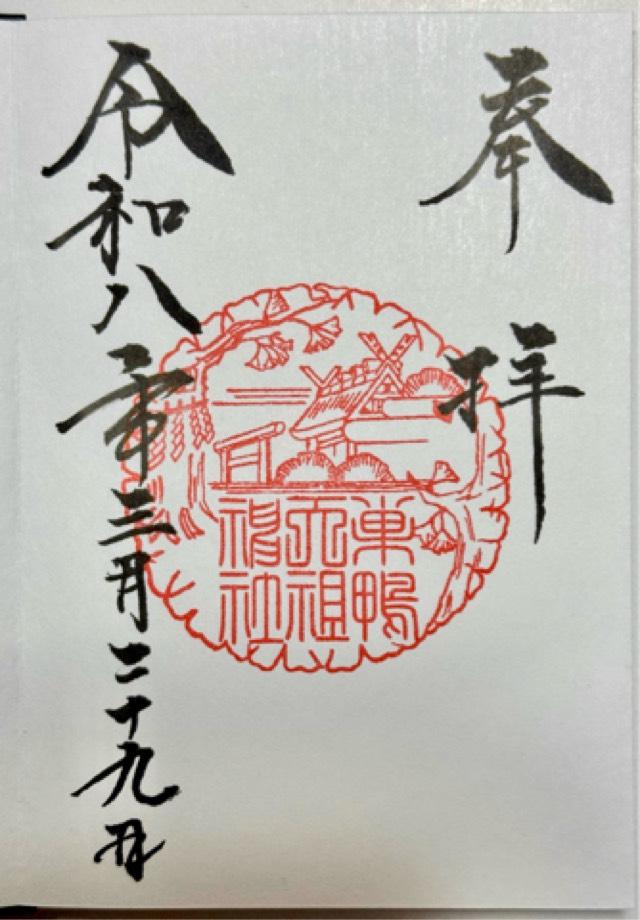 奉拝
巣鴨
天祖
神社
令和八年三月二十九日